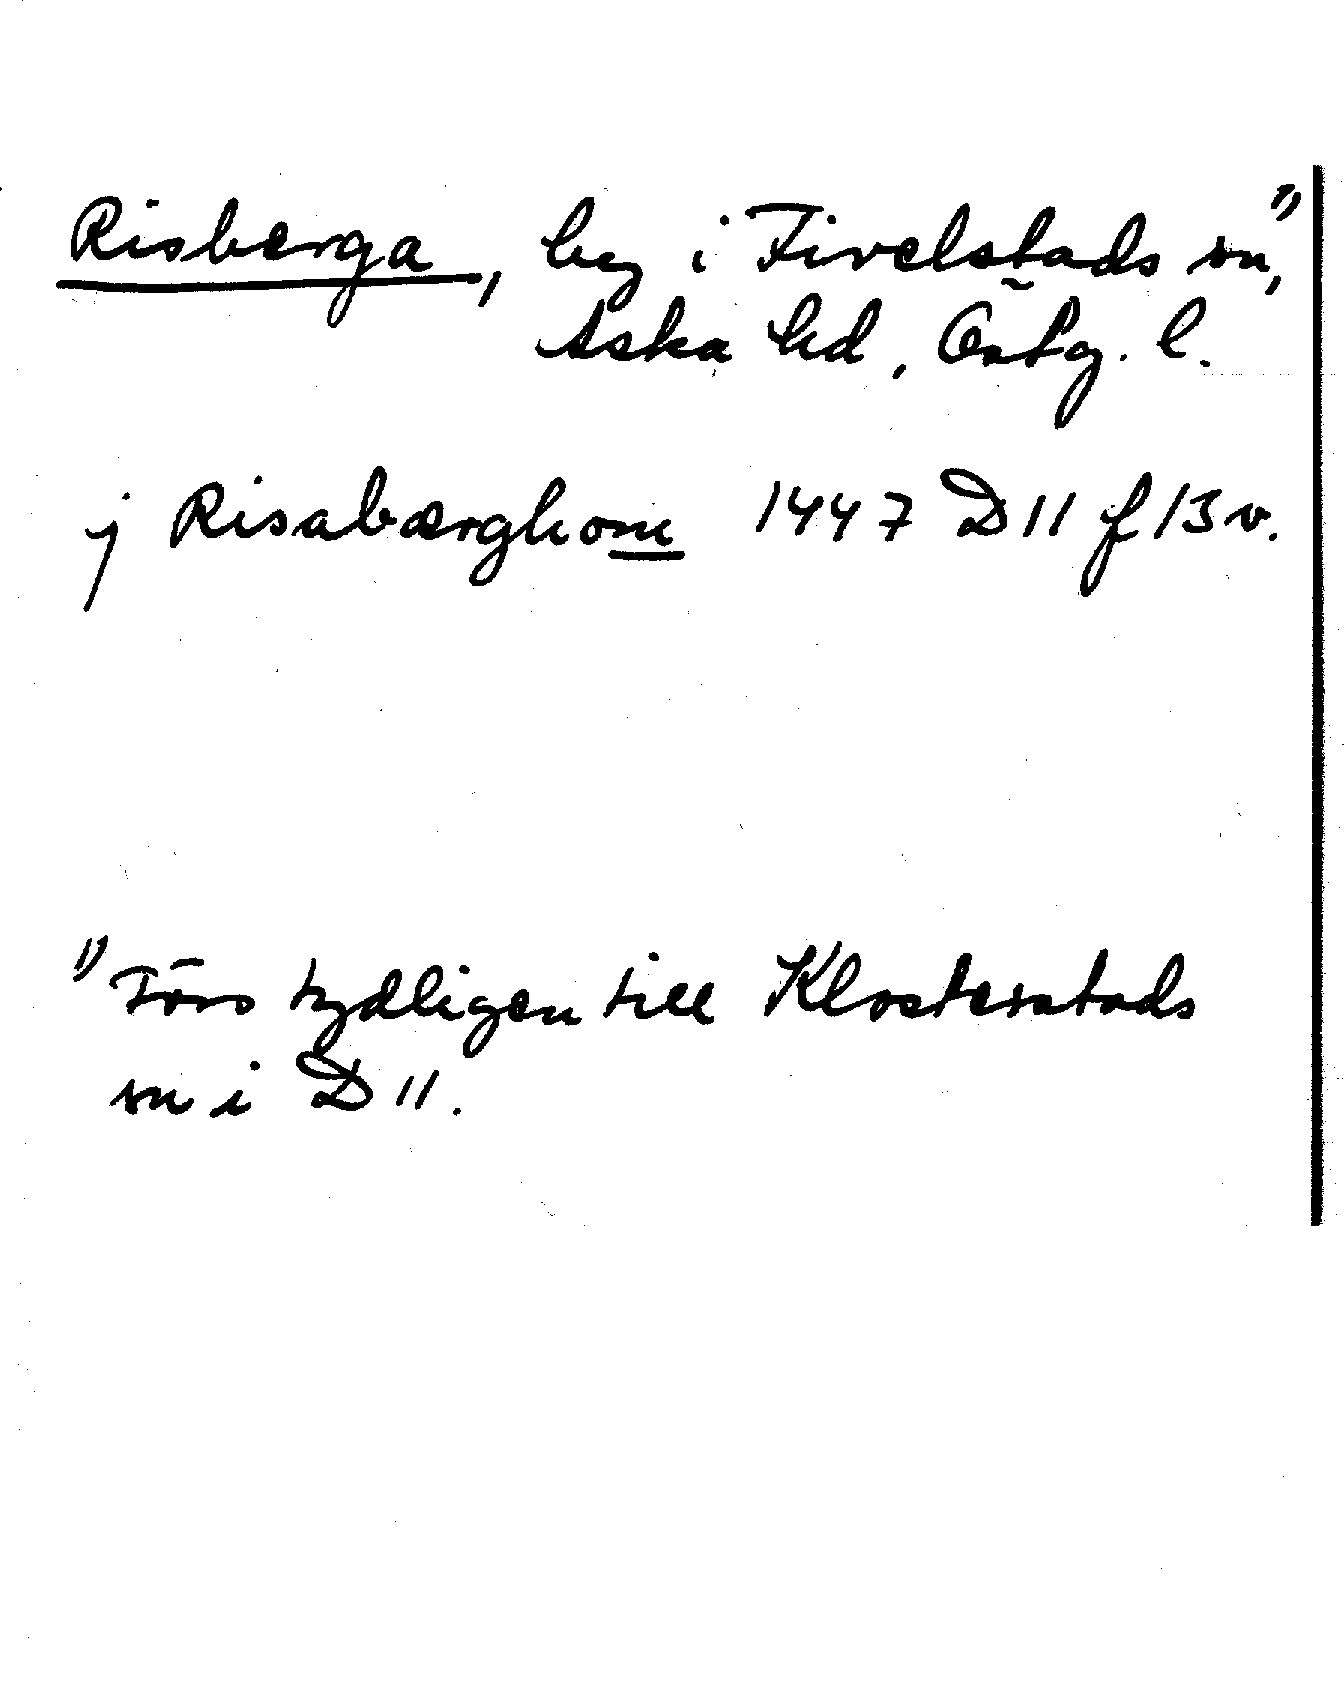 Risberga, by i Fivelstads sn,¹⁾
Aska hd, Östg. l.
j Risabærghom 1447 D 11 f 13 v.
¹⁾ Förs tydligen till Klosterstads
sn i D 11.